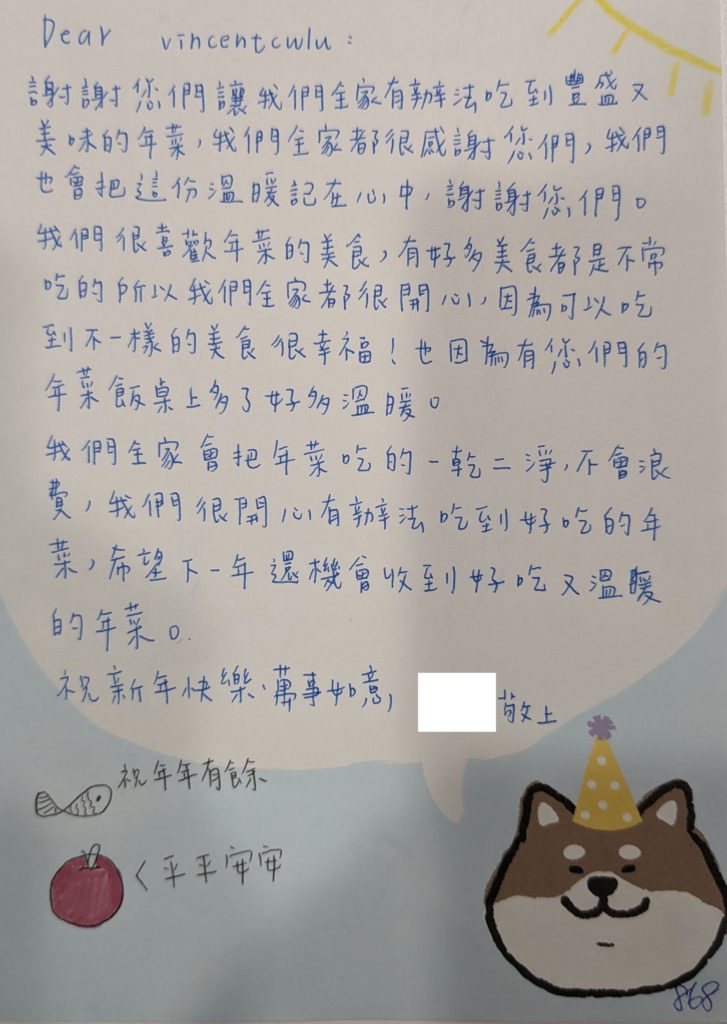 Dear vincentcwlu：
謝謝您們讓我們全家有辦法吃到豐盛又
美味的年菜，我們全家都很感謝您們，我們
也會把這份溫暖記在心中，謝謝您們。
我們很喜歡年菜的美食，有好多美食都是不常
吃的所以我們全家都很開心，因為可以吃
到不一樣的美食很幸福！也因為有您們的
年菜飯桌上多了好多溫暖。
我們全家會把年菜吃的一乾二淨，不會浪
費，我們很開心有辦法吃到好吃的年
菜，希望下一年還機會收到好吃又溫暖
的年菜。
祝新年快樂、萬事如意， 敬上
祝年年有餘
く平平安安
868